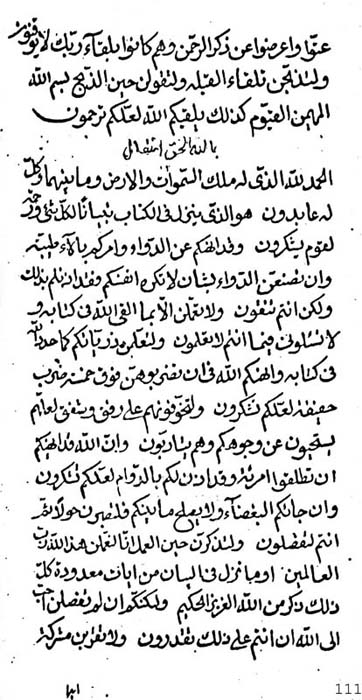 عتوا واعرضوا عن ذكر الرحمن وهم كانوا بلقاء ربك لا يوقنون
ولتذبحن تلقاء القبله ولتقولن حين الذبح بسم الله
المهيمن القيوم كذلك يلقيكم الله لعلكم ترحمون
بالله الحق
الحمد لله الذى له ملك السموات والارض وما بينهما وكل
له عابدون هو الذى ينزل فى الكتاب تبيانا لكل شئ ورحمة
لقوم يشكرون وقد نهيكم عن الدواء وامركم بآلاء طيبه
وان تصنعن الدواء بشان لا تكره انفسكم فقد اذنلكم بذلك
ولكن انتم تتقون ولا تعملن الا بما القى الله فى كتابه و
لا تسئلونى فيما انتم لا تعلمون ولتعلمن ذرياتكم كما حدد الله
فى كتابه وانهيكم الله فى ان تضربوهن فوق خمسة ضرب
خفيفة لعلكم تشكرون ولتخوفونهم على رفق وستفق لعلهم
يستحيون عن وجوهكم وهم يتادبون وان الله قد انهيكم
ان تطلقوا امرئة وقد اذن لكم بالدوام لعلكم تشكرون
وان جائكم البغضآء ولا يصلح ما بينكم فلتصبرن حولا ثم
انتم تفصلون ولتذكرن حين العمل انا لنعملن هذا لله رب
العالمين او ما نزل فى البيان من ايات معدودة كل
ذلك ذكر من الله العزيز الحكيم ولكنكم ان لم تفصلن احب
الى الله ان انتم على ذلك تقدرون ولا تقربن مشركة
ابدا
111